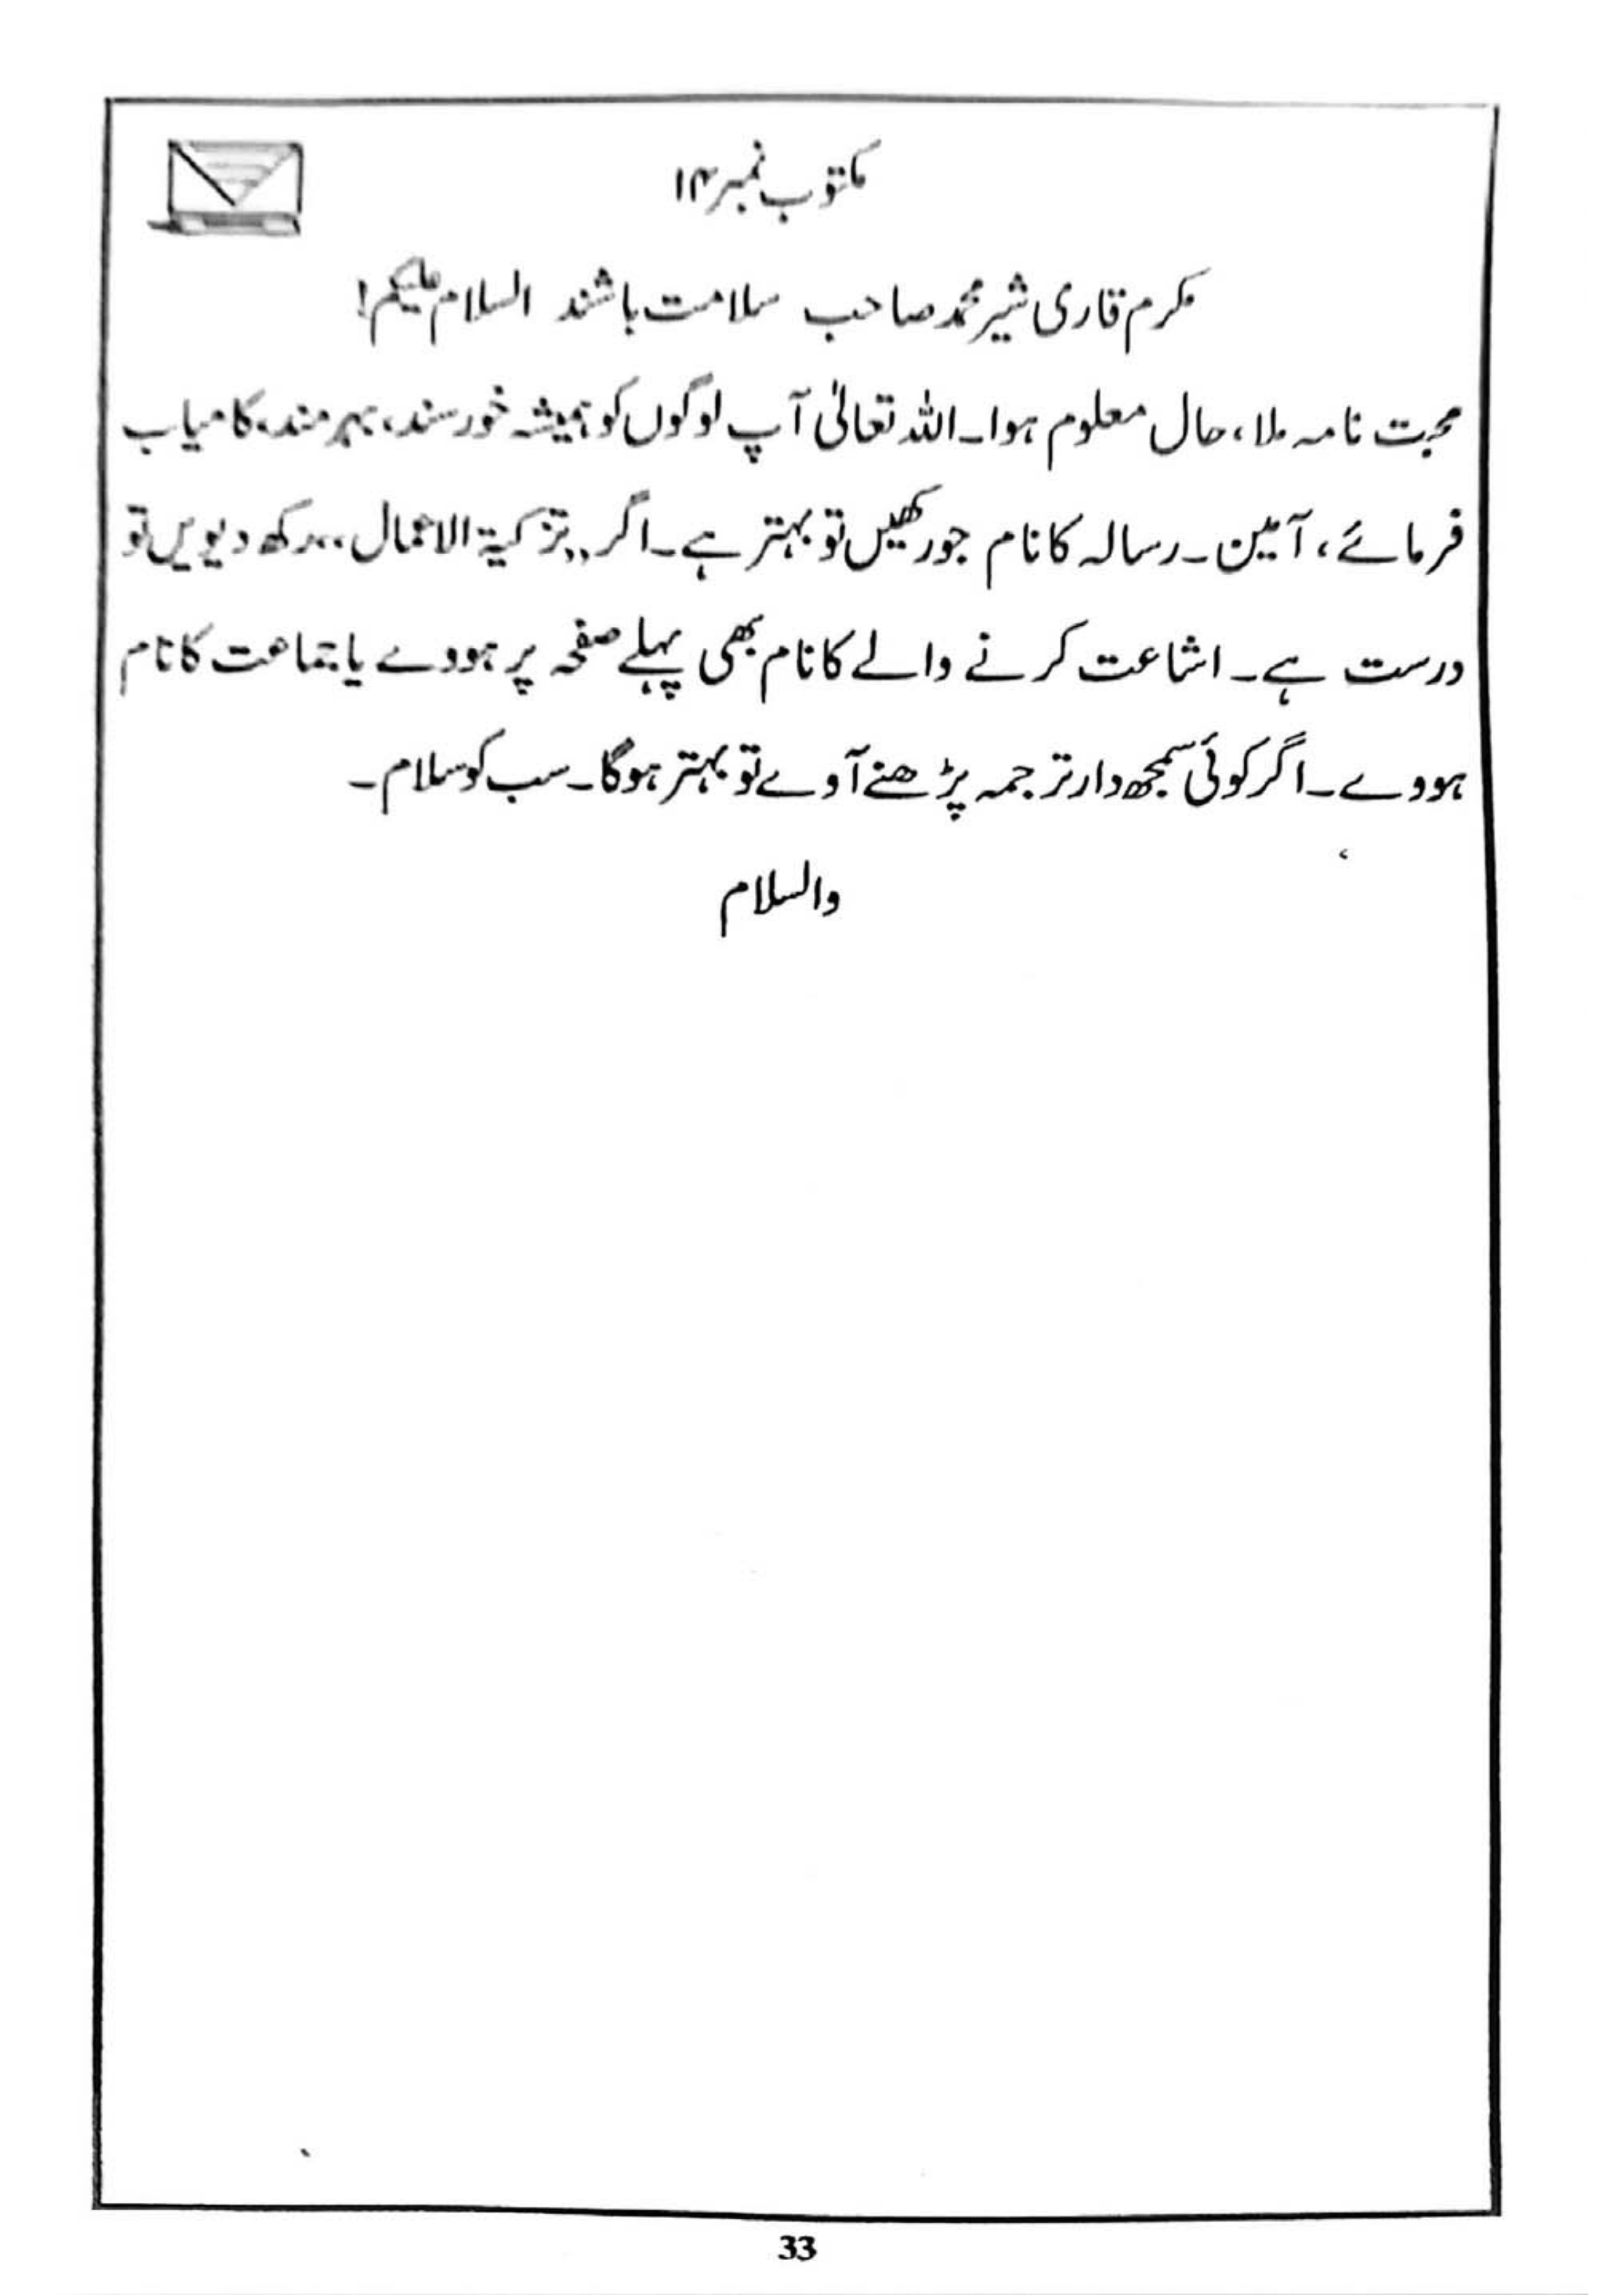 مکتوب نمبر ۱۴
مکرم قاری شیر محمد صاحب سلامت باشند السلام علیکم!
محبت نامہ ملا، حال معلوم ہوا۔ اللہ تعالیٰ آپ لوگوں کو ہمیشہ خورسند، بہرمند، کامیاب
فرمائے، آمین۔ رسالہ کا نام جو رکھیں تو بہتر ہے۔ اگر ,,تزکیۃ الاعمال،، رکھ دیویں تو
درست ہے۔ اشاعت کرنے والے کا نام بھی پہلے صفحہ پر ہووے یا جماعت کا نام
ہووے۔ اگر کوئی سمجھ دار ترجمہ پڑھنے آوے تو بہتر ہوگا۔ سب کو سلام۔
والسلام
33